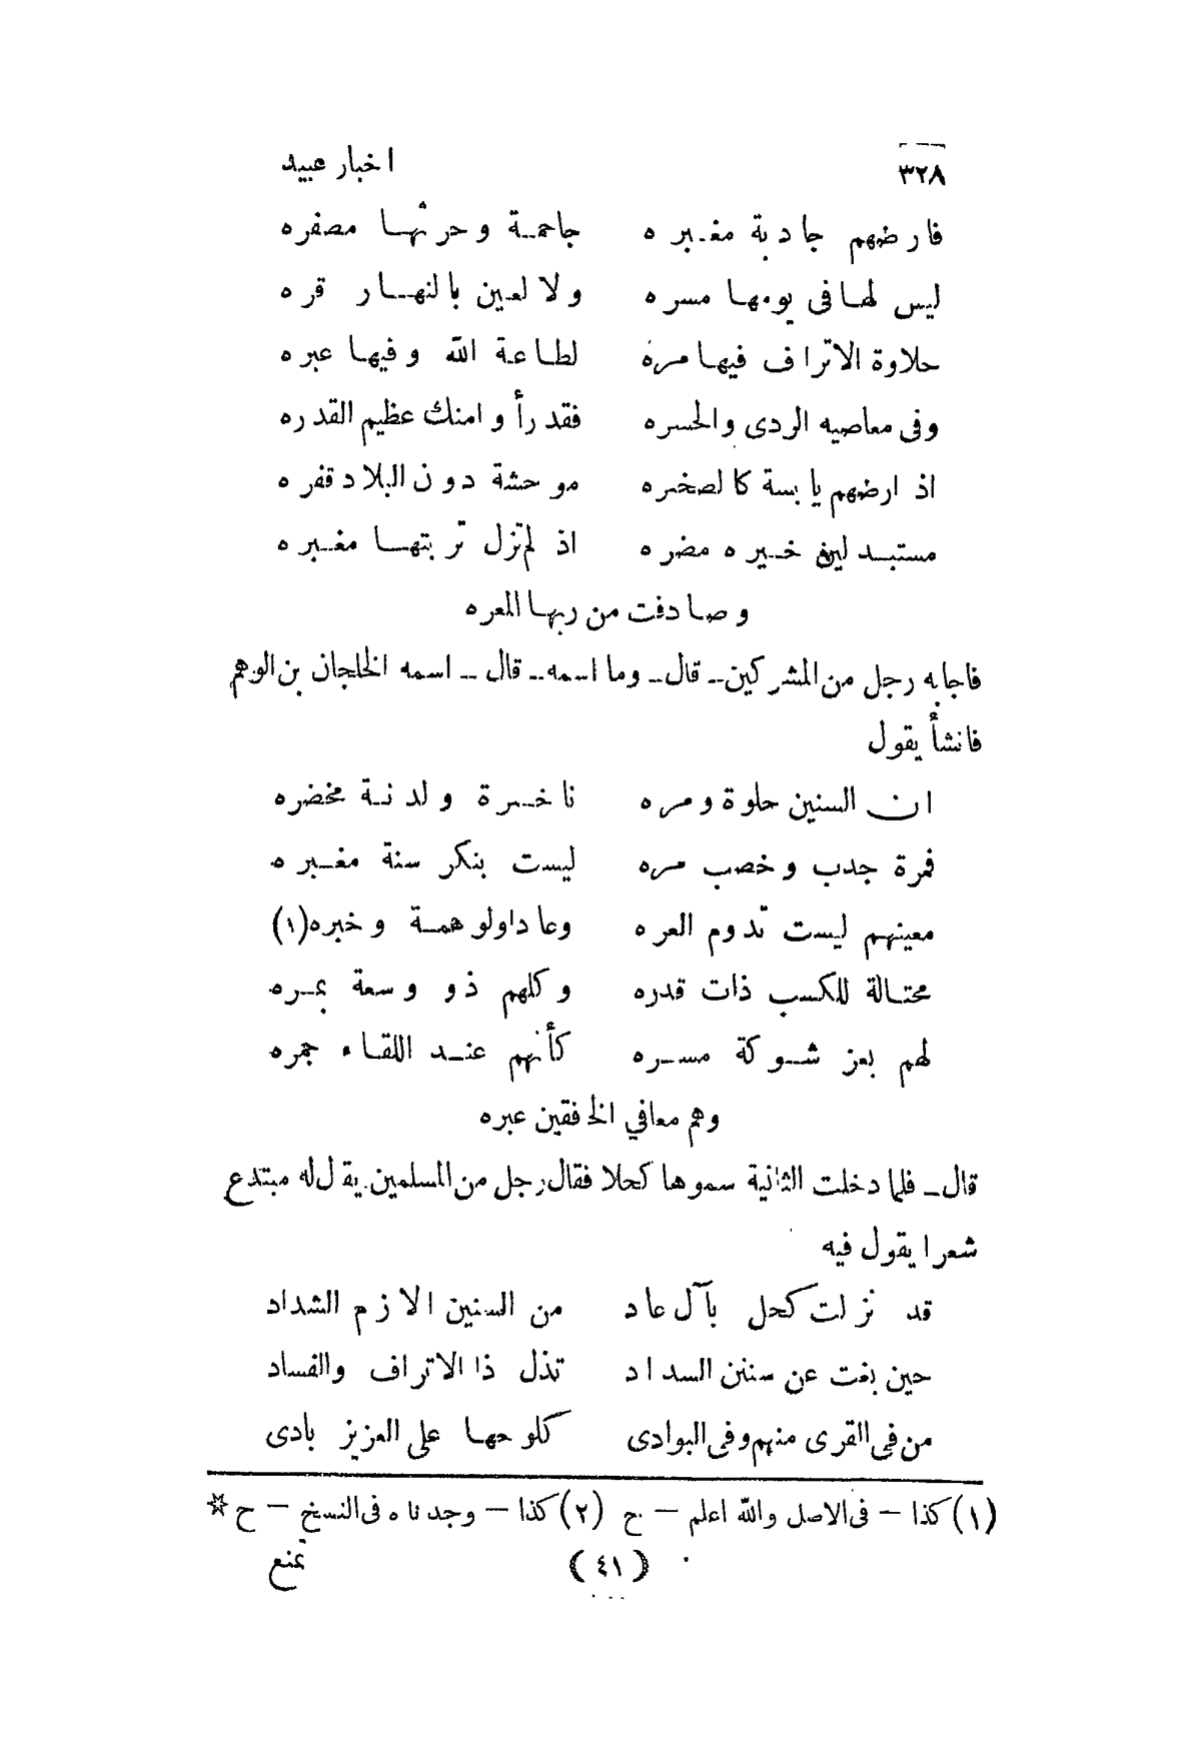 ٣٢٨ اخبار عبيد
فارضهم جادبة مغبره جاحمة وحرثها مصفره
ليس لها فى يومها مسره ولا لعين بالنهار قره
حلاوة الاتراف فيها مره لطاعة الله وفيها عبره
وفى معاصيه الردى والحسره فقد رأوا منك عظيم القدره
اذ ارضهم يابسة كالصخره موحشة دون البلاد قفره
مستبدلين خيره مضره اذ لم تزل تربتها مغبره
وصادفت من ربها المعره
فاجابه رجل من المشركين ـ قال ـ وما اسمه ـ قال ـ اسمه الخلجان بن الوهم
فانشأ يقول
ان السنين حلوة ومره ناخرة ولدنة مخضره
فمرة جدب وخصب مره ليست بنكر سنة مغبره
معينهم ليست تدوم العره وعاد اولو همة وخبره (١)
محتالة للكسب ذات قدره وكلهم ذو وسعة بمره
لهم بعز شوكة مسره كأنهم عند اللقاء جمره
وهم معافي الخافقين عبره
قال ـ فلما دخلت الثانية سموها كحلا فقال رجل من المسلمين يقال له مبتدع
شعرا يقول فيه
قد نزلت كحل بآل عاد من السنين الازم الشداد
حين بغت عن سنن السداد تذل ذا الاتراف والفساد
من فى القرى منهم وفى البوادى كلوحها على العزيز بادى
(١) كذا — فى الاصل والله اعلم — ح (٢) كذا — وجدناه فى النسخ — ح *
(٤١) تمنع